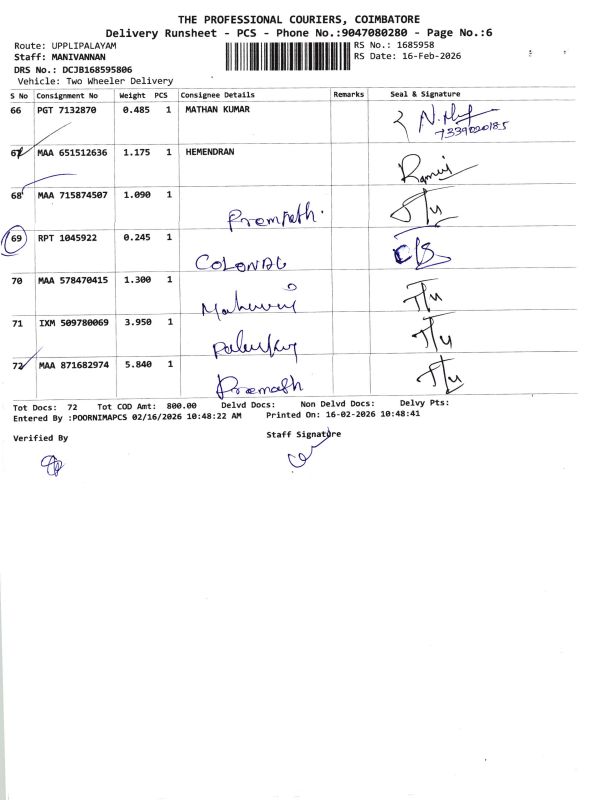 THE PROFESSIONAL COURIERS, COIMBATORE
Delivery Runsheet - PCS - Phone No.:9047080280 - Page No.:6
Route: UPPLIPALAYAM RS No.: 1685958
Staff: MANIVANNAN RS Date: 16-Feb-2026
DRS No.: DCJB168595806
Vehicle: Two Wheeler Delivery
S No Consignment No Weight PCS Consignee Details Remarks Seal & Signature
66 PGT 7132870 0.485 1 MATHAN KUMAR
7339020185
67 MAA 651512636 1.175 1 HEMENDRAN
68 MAA 715874507 1.090 1
69 RPT 1045922 0.245 1
70 MAA 578470415 1.300 1
71 IXM 509780069 3.950 1
72 MAA 871682974 5.840 1
Tot Docs: 72 Tot COD Amt: 800.00 Delvd Docs: Non Delvd Docs: Delvy Pts:
Entered By :POORNIMAPCS 02/16/2026 10:48:22 AM Printed On: 16-02-2026 10:48:41
Verified By Staff Signature